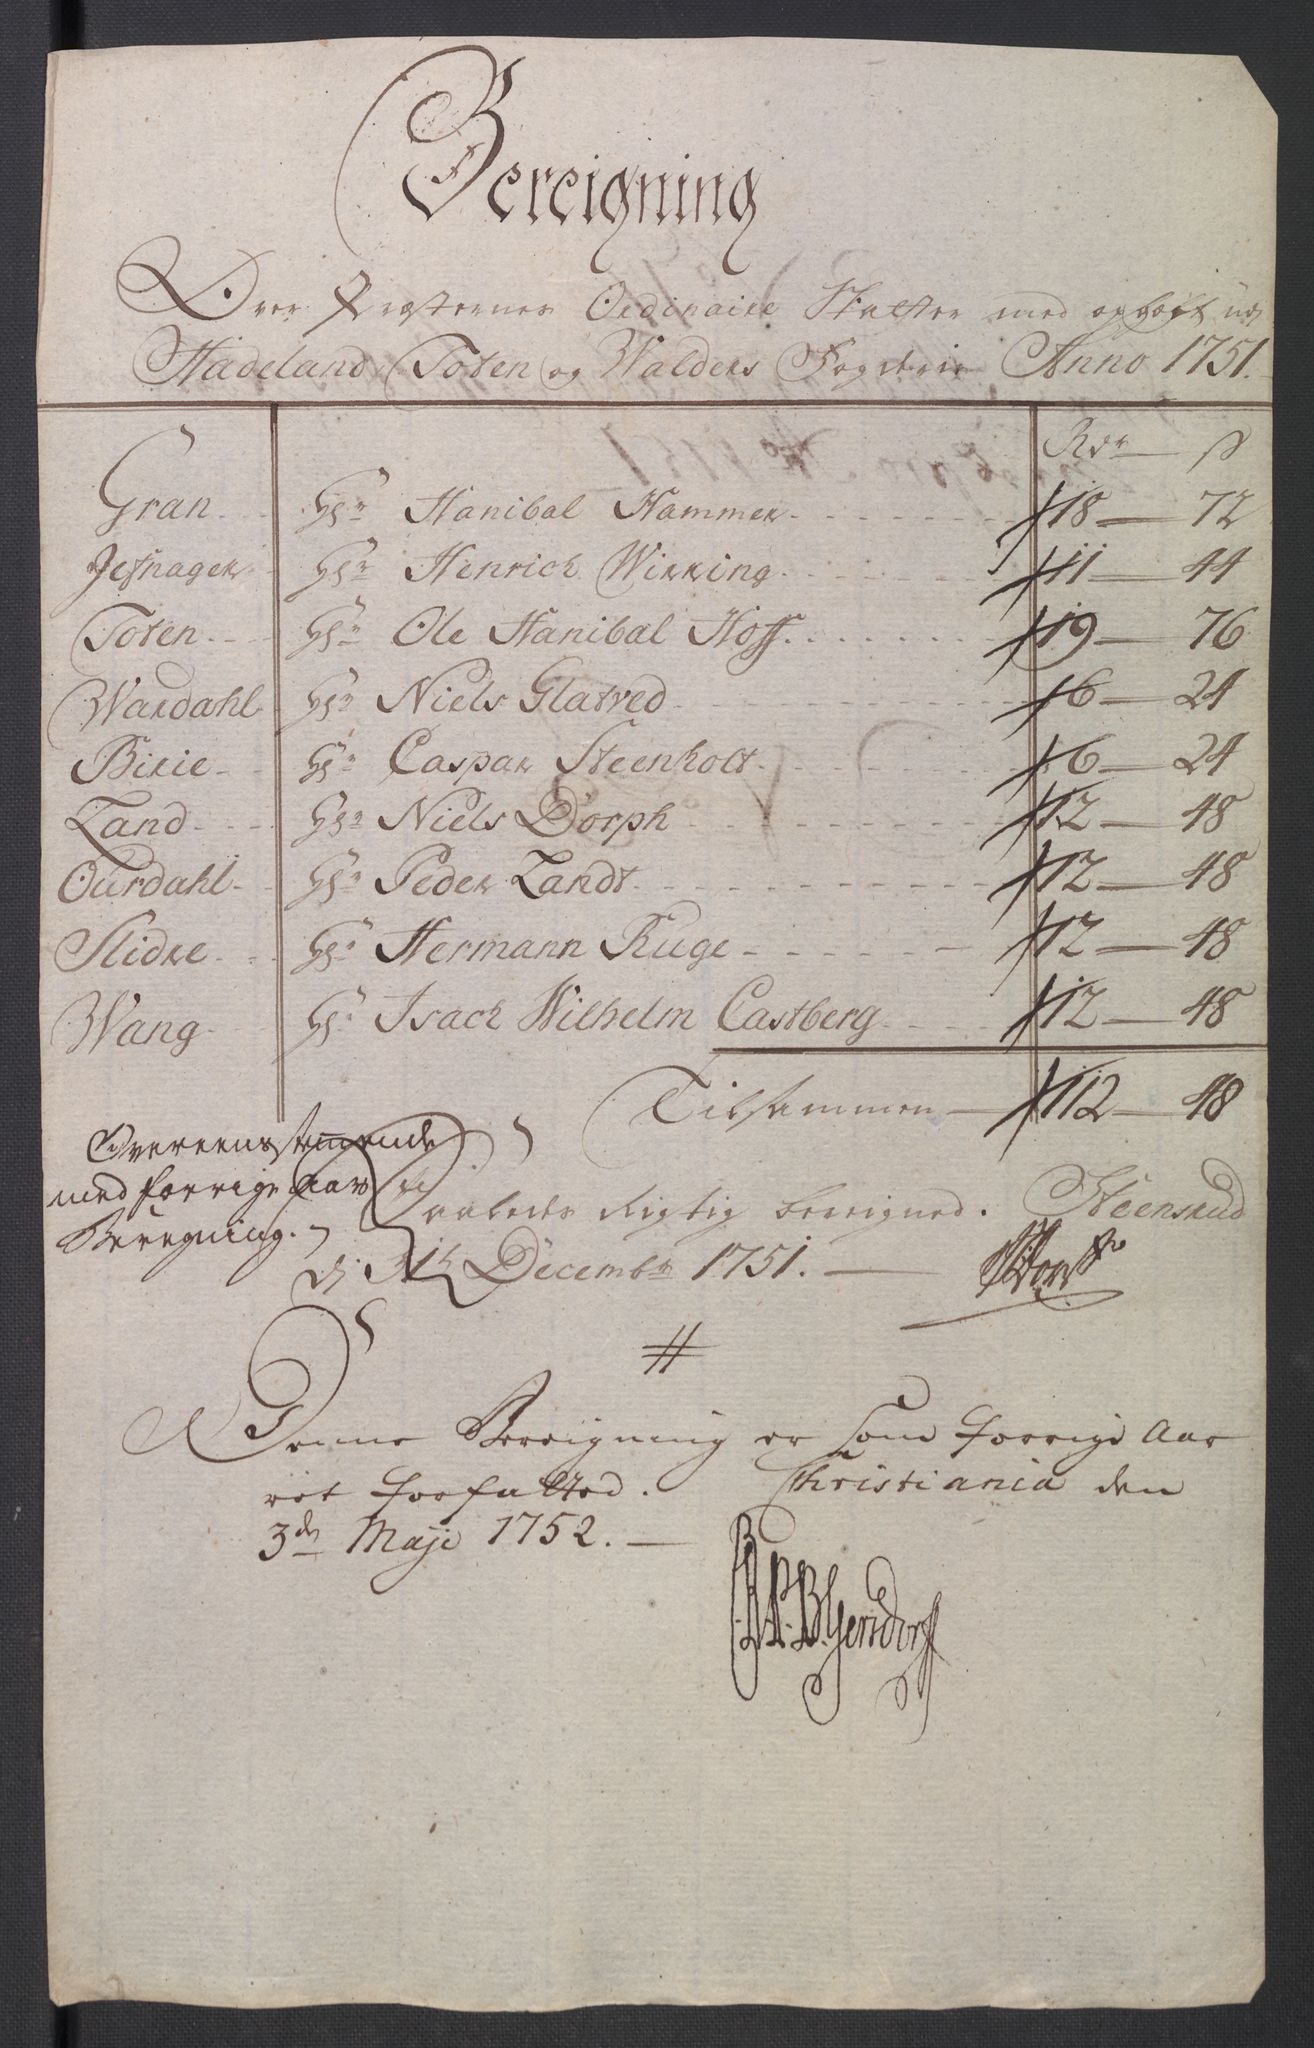 Bereigning
Over Præsternes Ordinaire Skatter med ophøft udj
Hadeland Toten og Walders Fogderie Anno 1751.
Rdr ß
Gran Hr Hanibal Hammer 18 72
Jefnager Hr Henrich Wirring 11 44
Toten Hr Ole Hanibal Hoff 19 76
Wardahl Hr Niels Glatved 6 24
Birie Hr Caspar Steenholt 6 24
Land Hr Niels Dorph 12 48
Ourdahl Hr Peder Landt 12 48
Slidre Hr Hermann Ruge 12 48
Wang Hr Isach Wilhelm Castberg 12 48
Tilsammen 112 48
Overeensstemmende
med forrige aars
Beregning.
Saaledes Rigtig bereigned. Steensrud
d: 31t Decembr 1751.
Denne Bereigning er som forrige Aar
ret forfatted. Christiania den
3de Maji 1752.
B. Gersdorff